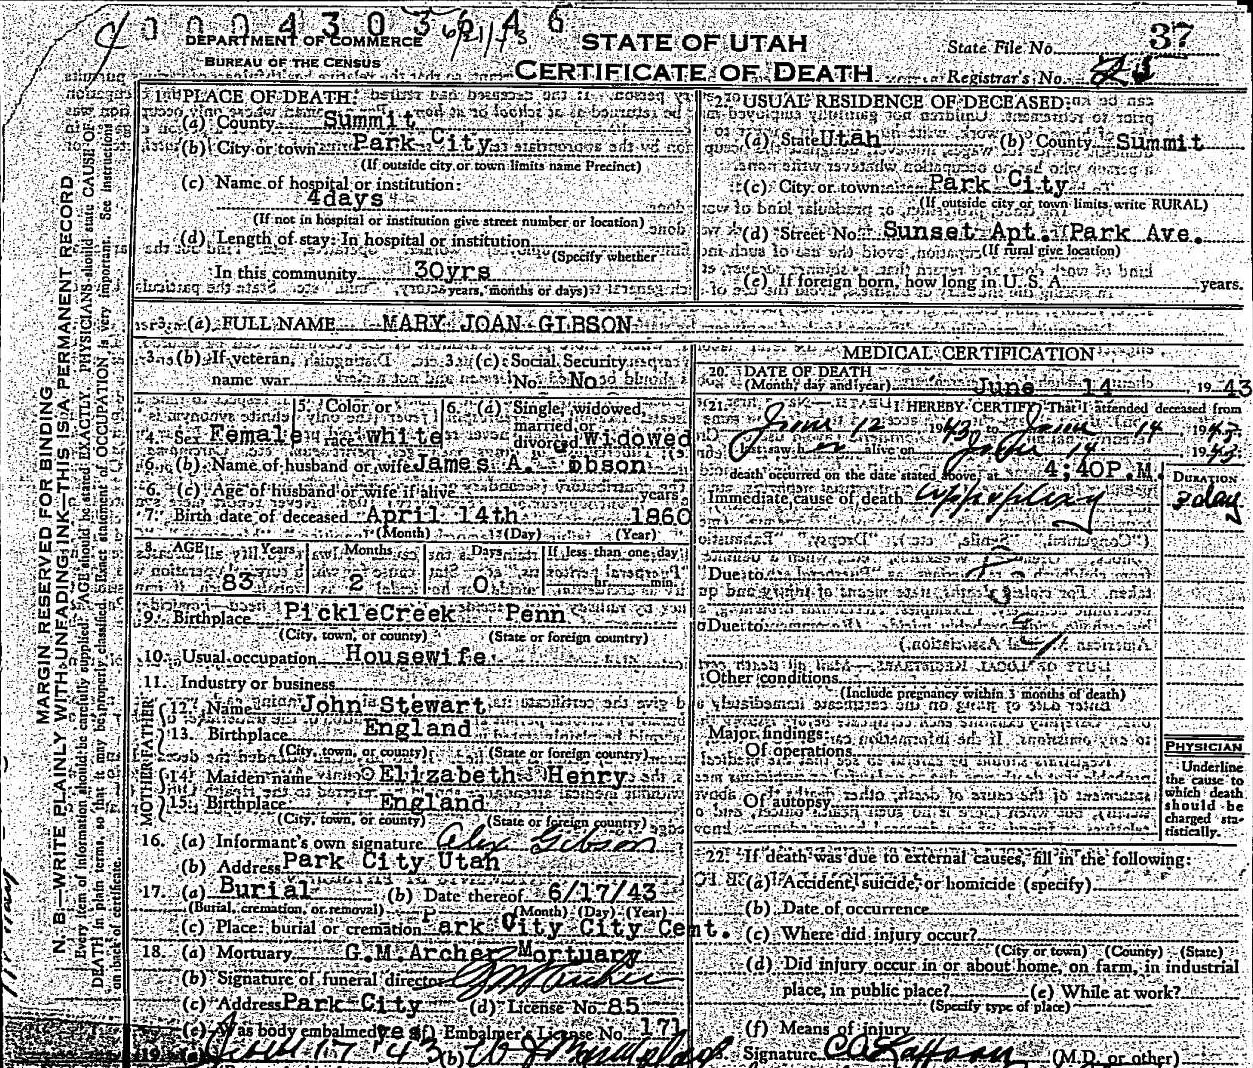 0 0 0 4 3 0 3 6 4 6
DEPARTMENT OF COMMERCE
BUREAU OF THE CENSUS
STATE OF UTAH
CERTIFICATE OF DEATH
State File No. 37
Registrar's No.
MARGIN RESERVED FOR BINDING
N. B.—WRITE PLAINLY WITH UNFADING INK—THIS IS A PERMANENT RECORD
Every item of information should be carefully supplied. AGE should be stated EXACTLY. PHYSICIANS should state CAUSE OF
DEATH in plain terms, so that it may be properly classified. Exact statement of OCCUPATION is very important. See instructions
on back of certificate.
1. PLACE OF DEATH:
(a) County Summit
(b) City or town Park City
(If outside city or town limits name Precinct)
(c) Name of hospital or institution:
4days
(If not in hospital or institution give street number or location)
(d) Length of stay: In hospital or institution
(Specify whether
In this community 30yrs
years, months or days)
2. USUAL RESIDENCE OF DECEASED:
(a) State Utah (b) County Summit
(c) City or town Park City
(If outside city or town limits write RURAL)
(d) Street No. Sunset Apt. Park Ave.
(If rural give location)
(e) If foreign born, how long in U. S. A. years.
3. (a) FULL NAME MARY JOAN GIBSON
3. (b) If veteran, name war
3. (c) Social Security No. No
4. Sex Female
5. Color or race white
6. (a) Single, widowed, married, or divorced Widowed
6. (b) Name of husband or wife James A. Gibson
6. (c) Age of husband or wife if alive years
7. Birth date of deceased April 14th 1860
(Month) (Day) (Year)
8. AGE Years Months Days If less than one day
83 2 0 hr. min.
9. Birthplace PickleCreek Penn
(City, town, or county) (State or foreign country)
10. Usual occupation Housewife
11. Industry or business
FATHER
12. Name John Stewart
13. Birthplace England
(City, town, or county) (State or foreign country)
MOTHER
14. Maiden name Elizabeth Henry
15. Birthplace England
(City, town, or county) (State or foreign country)
16. (a) Informant's own signature Alex Gibson
(b) Address Park City Utah
17. (a) Burial (b) Date thereof 6/17/43
(Burial, cremation, or removal) (Month) (Day) (Year)
(c) Place: burial or cremation Park City City Cemt.
18. (a) Mortuary G.M.Archer Mortuary
(b) Signature of funeral director GM Archer
(c) Address Park City (d) License No. 85
(e) Was body embalmed yes (f) Embalmer's License No. 171
19. (a) June 17 '43 (b)
MEDICAL CERTIFICATION
20. DATE OF DEATH
(Month, day and year) June 14 1943
21. I HEREBY CERTIFY, That I attended deceased from
June 12 1943, to June 14 1943.
I last saw alive on June 14 1943.
death occurred on the date stated above, at 4;40P.M.
DURATION
Immediate cause of death apoplexy 3 days
Due to
Due to
Other conditions
(Include pregnancy within 3 months of death)
Major findings:
Of operations
Of autopsy
PHYSICIAN
Underline
the cause to
which death
should be
charged sta-
tistically.
22. If death was due to external causes, fill in the following:
(a) Accident, suicide, or homicide (specify)
(b) Date of occurrence
(c) Where did injury occur?
(City or town) (County) (State)
(d) Did injury occur in or about home, on farm, in industrial
place, in public place? (e) While at work?
(Specify type of place)
(f) Means of injury
Signature (M.D. or other)